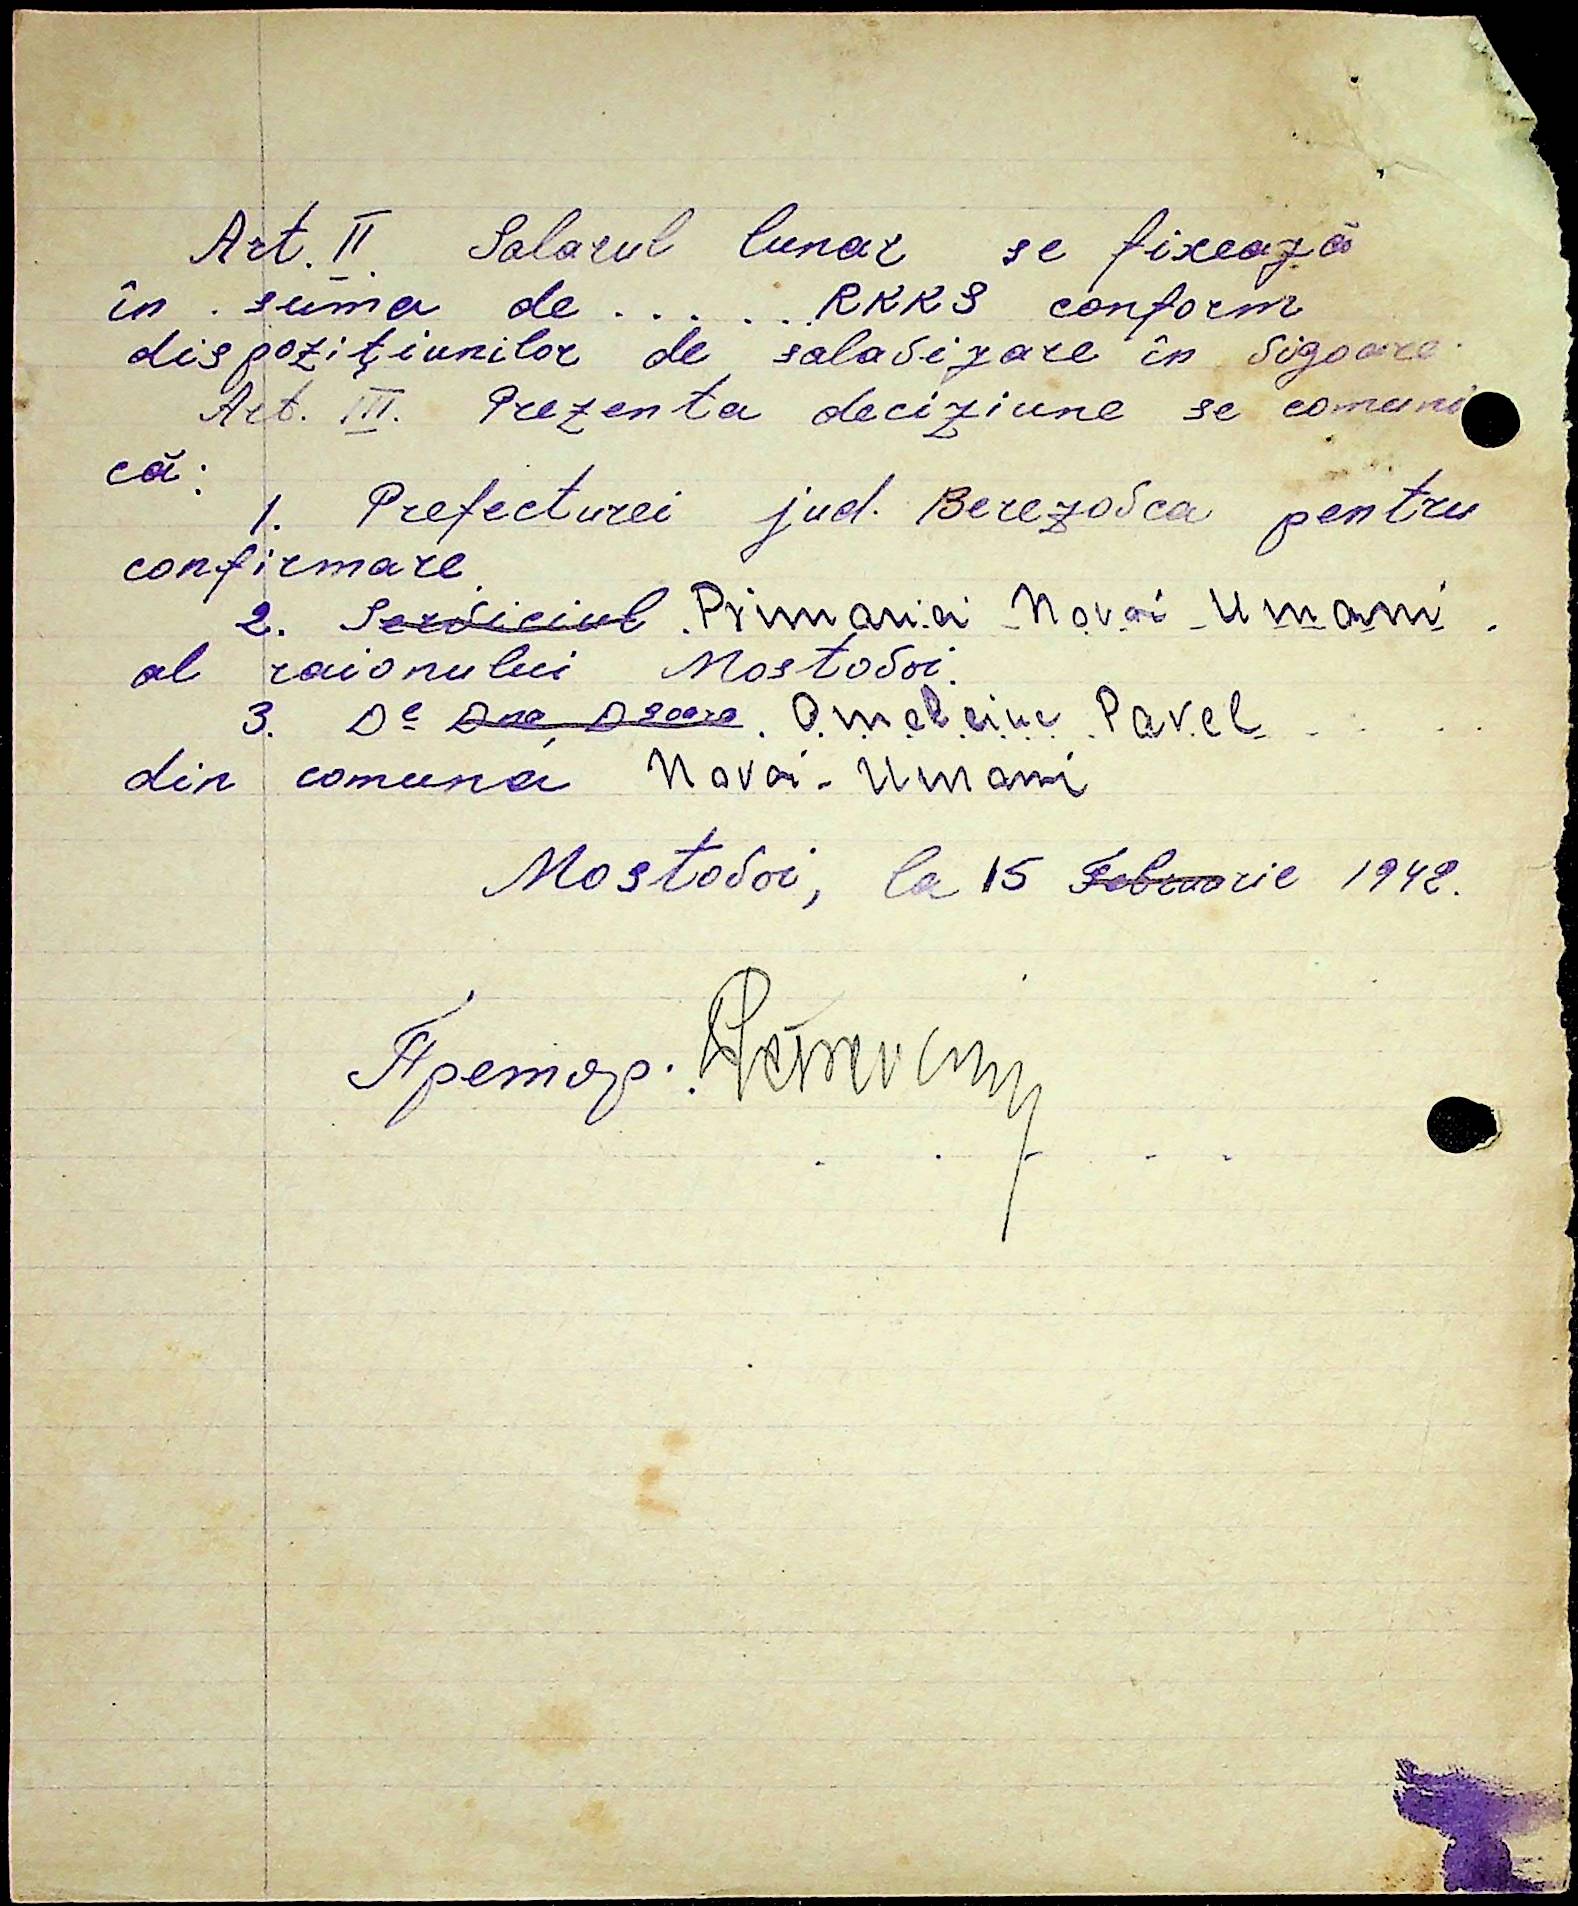 Art. II. Salarul lunar se fixează
în suma de ...... RKKS conform
dispoziţiunilor de salavizare în vigoare.
Art. III. Prezenta deciziune se comuni
că:
1. Prefecturei jud. Berezovca pentru
confirmare.
2. Serviciul Primariei Novai Umani.
al raionului Mostovoi.
3. Dl Dna, Dsoara. Omelciuc Pavel .....
din comuna Novai-Umani
Mostovoi, la 15 Februarie 1942.
Претор.